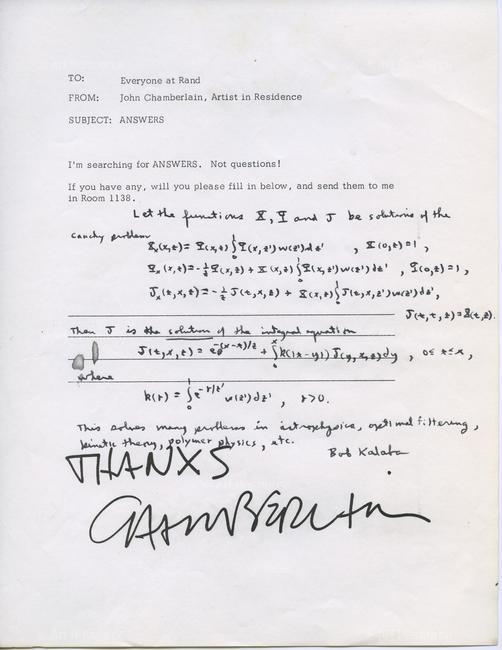 TO: Everyone at Rand
FROM: John Chamberlain, Artist in Residence
SUBJECT: ANSWERS
I'm searching for ANSWERS. Not questions!
If you have any, will you please fill in below, and send them to me
in Room 1138.
Let the functions X, Y and J be solutions of the
Cauchy problem
X_x(x,z) = Y(x,z) ∫₀¹ Y(x,z') w(z') dz' , X(0,z) = 1,
Y_x(x,z) = -1/z Y(x,z) + X(x,z) ∫₀¹ Y(x,z') w(z') dz' , Y(0,z) = 1,
J_x(t,x,z) = -1/z J(t,x,z) + X(x,z) ∫₀¹ J(t,x,z') w(z') dz',
J(t,t,z) = X(t,z).
Then J is the solution of the integral equation
J(t,x,z) = e^{-(x-t)/z} + ∫₀ˣ k(|t-y|) J(y,x,z) dy , 0 ≤ t ≤ x,
where
k(r) = ∫₀¹ e^{-r/z'} w(z') dz' , r > 0.
This solves many problems in astrophysics, optimal filtering,
kinetic theory, polymer physics, etc.
Bob Kalaba
THANXS
CHAMBERLAIN